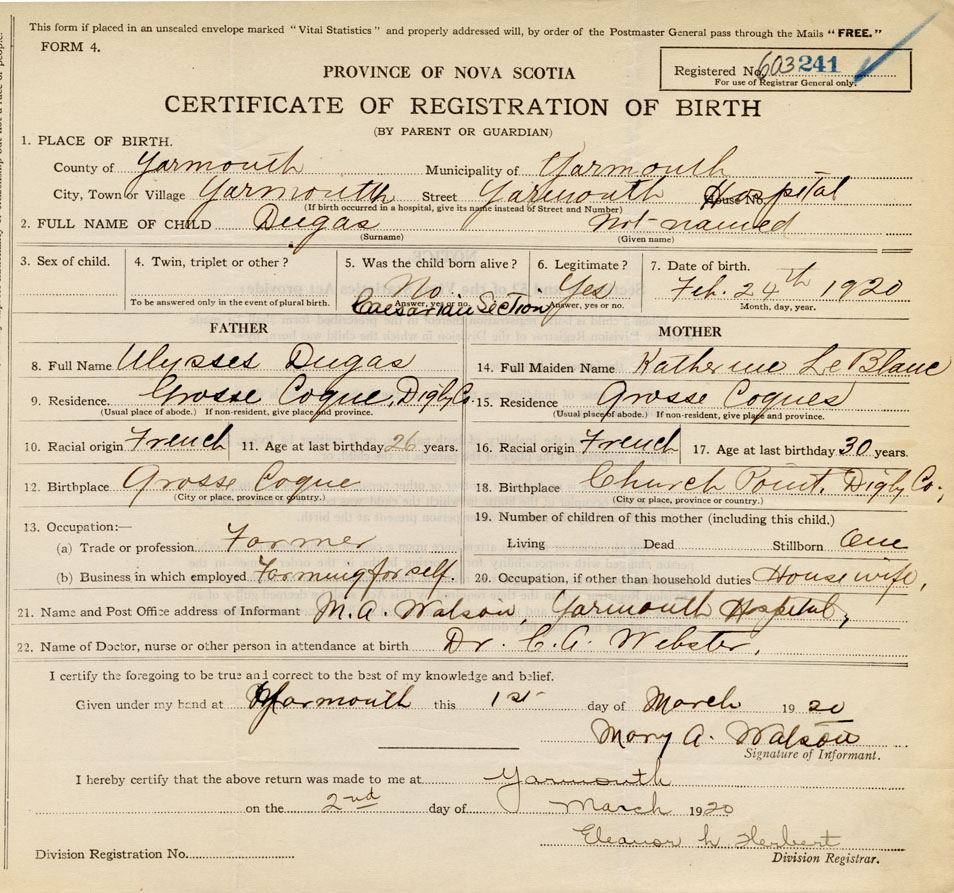 This form if placed in an unsealed envelope marked "Vital Statistics" and properly addressed will, by order of the Postmaster General pass through the Mails "FREE."
FORM 4.
Registered No. 603241
For use of Registrar General only.
PROVINCE OF NOVA SCOTIA
CERTIFICATE OF REGISTRATION OF BIRTH
(BY PARENT OR GUARDIAN)
1. PLACE OF BIRTH.
County of Yarmouth Municipality of Yarmouth
City, Town or Village Yarmouth Street Yarmouth House No. Hospital
(If birth occurred in a hospital, give its name instead of Street and Number)
2. FULL NAME OF CHILD Dugas Not-named
(Surname) (Given name)
3. Sex of child. 4. Twin, triplet or other? 5. Was the child born alive? 6. Legitimate? 7. Date of birth.
No Yes Feb. 24th 1920
To be answered only in the event of plural birth. Answer, yes or no. Answer, yes or no. Month, day, year.
Caesarian Section
FATHER MOTHER
8. Full Name Ulysses Dugas 14. Full Maiden Name Katherine LeBlanc
9. Residence. Grosse Coque, Digby Co. 15. Residence Grosse Coques
(Usual place of abode.) If non-resident, give place and province. (Usual place of abode.) If non-resident, give place and province.
10. Racial origin French 11. Age at last birthday 26 years. 16. Racial origin French 17. Age at last birthday 30 years.
12. Birthplace Grosse Coque 18. Birthplace Church Point, Digby Co.,
(City or place, province or country.) (City or place, province or country.)
13. Occupation:— 19. Number of children of this mother (including this child.)
(a) Trade or profession Farmer Living Dead Stillborn One
(b) Business in which employed Farming for self. 20. Occupation, if other than household duties Housewife,
21. Name and Post Office address of Informant M. A. Watson, Yarmouth Hospital,
22. Name of Doctor, nurse or other person in attendance at birth Dr. C. A. Webster,
I certify the foregoing to be true and correct to the best of my knowledge and belief.
Given under my hand at Yarmouth this 1st day of March 1920
Mary A. Watson
Signature of Informant.
I hereby certify that the above return was made to me at Yarmouth
on the 2nd day of March 1920
Eleanor L. Herbert
Division Registration No. Division Registrar.